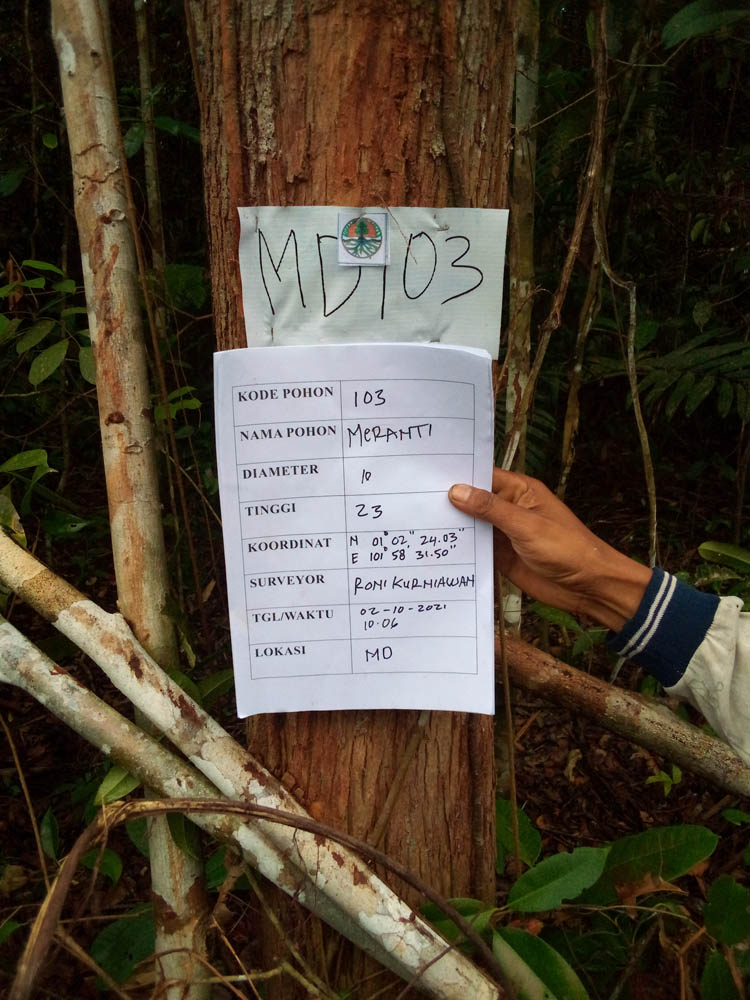 MD103
KODE POHON 103
NAMA POHON MERANTI
DIAMETER 10
TINGGI 23
KOORDINAT N 01° 02" 24.03"
E 101° 58' 31.50"
SURVEYOR RONI KURNIAWAN
TGL/WAKTU 02-10-2021
10.06
LOKASI MD